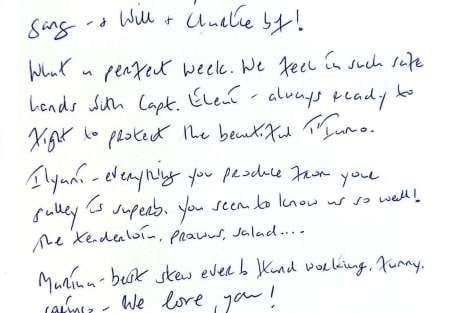 Sang - & Will & Charlie bf!
What a perfect week. We feel in such safe
hands with Capt. Eleni - always ready to
fight to protect the beautiful
Ilyani - everything you produce from your
galley is superb. You seem to know us so well!
The tenderloin, prawns, salad....
Marina - best stew ever! Hard working, funny,
caring - We love you!